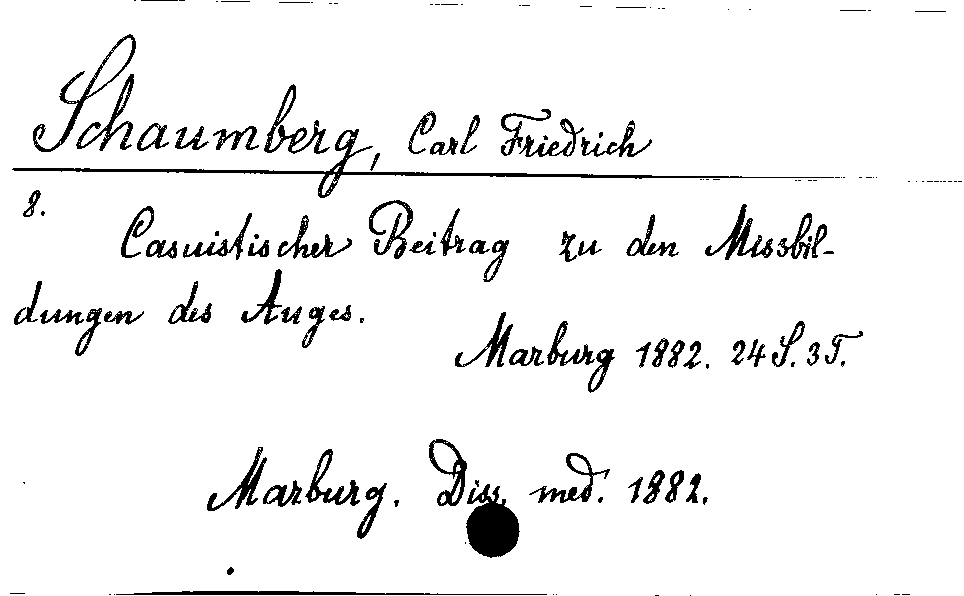 Schaumberg, Carl Friedrich
8.
Casuistischer Beitrag zu den Missbil-
dungen des Auges.
Marburg 1882. 24 S. 3 T.
Marburg. Diss. med. 1882.